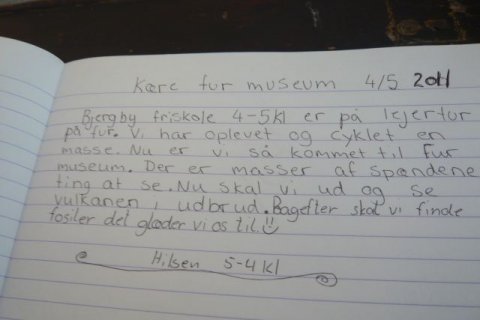 Kære fur museum 4/5 2011
Bjergby friskole 4-5kl er på lejertur
på fur. Vi har oplevet og cyklet en
masse. Nu er vi så kommet til Fur
museum. Der er masser af spændene
ting at se. Nu skal vi ud og se
vulkanen i udbrud. Bagefter skal vi finde
fosiler det glæder vi os til!
Hilsen 5-4kl